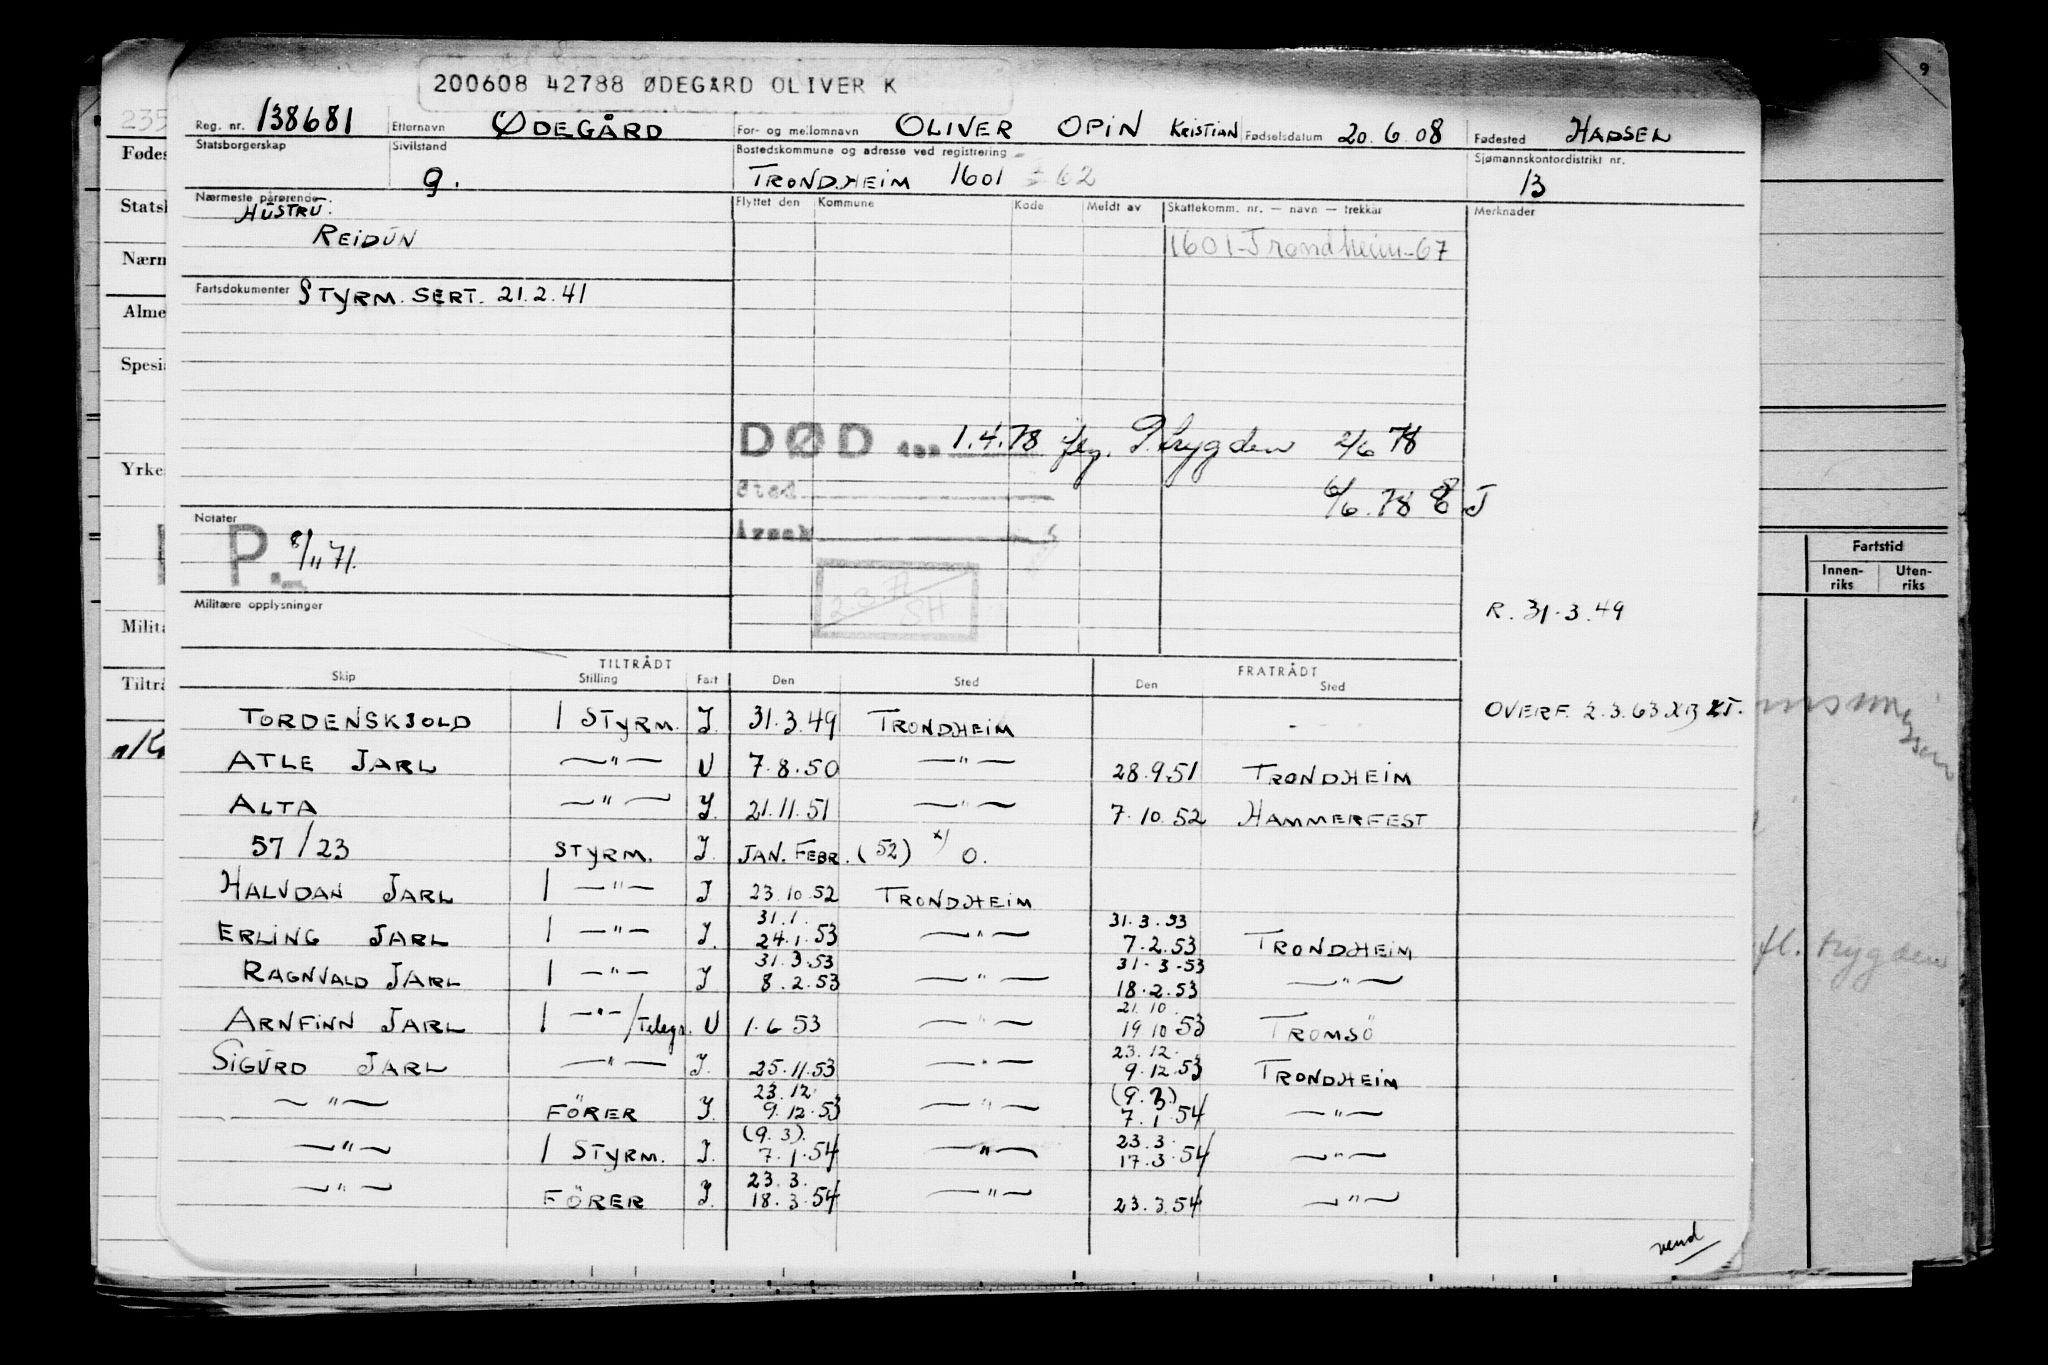 200608 42788 ØDEGÅRD OLIVER K
Reg. nr. 138681 Etternavn ØDEGÅRD For- og mellomnavn OLIVER ODIN KRISTIAN Fødselsdatum 20.6.08 Fødested HADSEL
Statsborgerskap Sivilstand g. Bostedskommune og adresse ved registrering TRONDHEIM 1601 62 Sjømannskontordistrikt nr. 13
Nærmeste pårørende HUSTRU: Flyttet den Kommune Kode Meldt av Skattekomm. nr. — navn — trekkår Merknader
REIDUN 1601-Trondheim-67
Fartsdokumenter STYRM. SERT. 21.2.41
DØD den 1.4.78 flg. P.trygden 2/6 78
Sted 6/6.78 J
Årsak
Notater
P. 8/11 71.
2.3.71
SH
Militære opplysninger
R. 31.3.49
TILTRÅDT FRATRÅDT
Skip Stilling Fart Den Sted Den Sted
OVERF. 2.3.63
TORDENSKJOLD 1 STYRM. I. 31.3.49 TRONDHEIM -
ATLE JARL —"— U 7.8.50 —"— 28.9.51 TRONDHEIM
ALTA —"— I. 21.11.51 —"— 7.10.52 HAMMERFEST
57/23 STYRM. I. JAN. FEBR. (52) x) O.
HALVDAN JARL 1 —"— I 23.10.52 TRONDHEIM
31.1. 31.3.53
ERLING JARL 1 —"— I. 24.1.53 —"— 7.2.53 TRONDHEIM
31.3.53 31.3.53
RAGNVALD JARL 1 —"— I 8.2.53 —"— 18.2.53 —"—
21.10
ARNFINN JARL 1 —"—/Telegr. U 1.6 53 —"— 19.10 53 TROMSÖ
23.12.
SIGURD JARL —"— I. 25.11.53 —"— 9.12.53 TRONDHEIM
23.12. (9.3.)
—"— FÖRER I. 9.12.53 —"— 7.1.54 —"—
(9.3). 23.3.
—"— 1 STYRM. I. 7.1.54 —"— 17.3.54 —"—
23.3.
—"— FÖRER I. 18.3.54 —"— 23.3.54 —"—
vend
235
Fødes
Statsb
Nærm
Alme
Spesia
Yrke
Milita
Tiltrå
9
Fartstid
Innen-
riks
Uten-
riks
fl. trygden